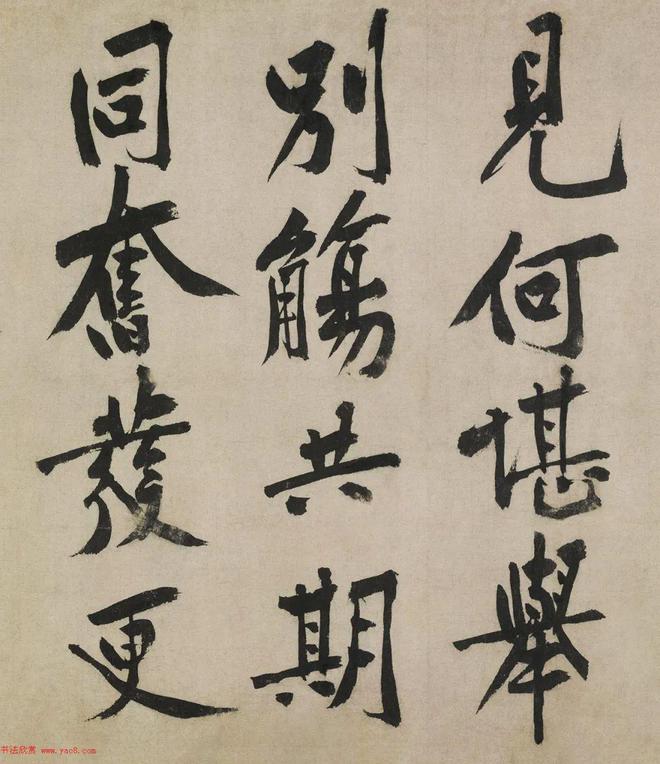 見何堪舉
別觴共期
同奮發更
书法欣赏 www.yac8.com